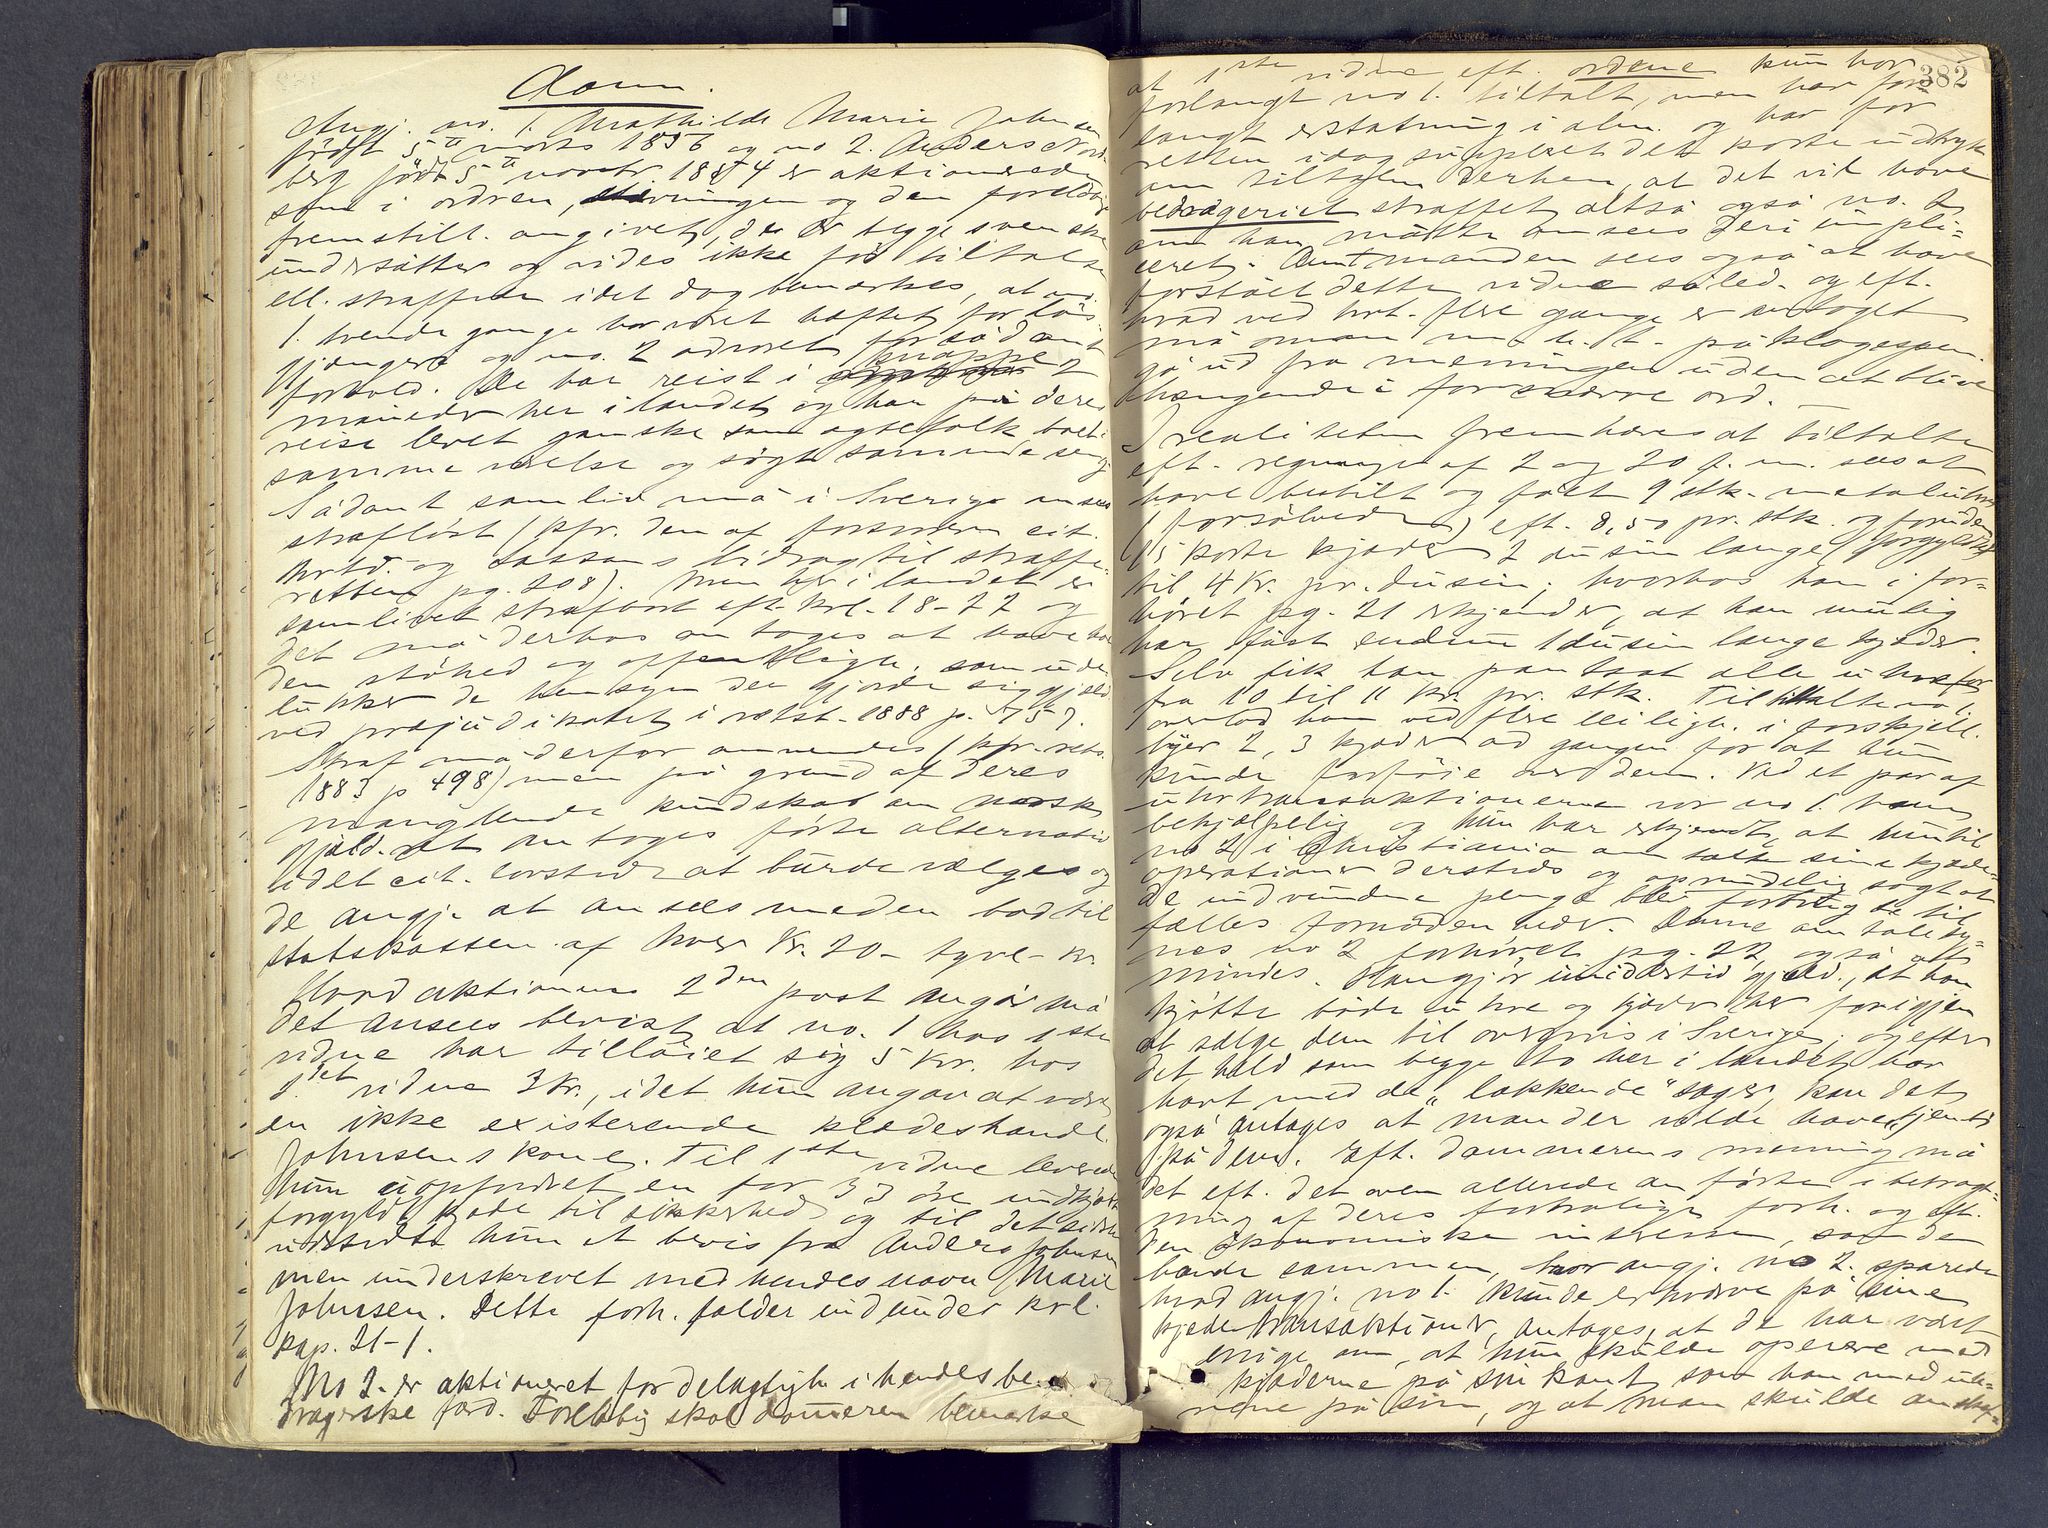 Dom.
Angj. no. 1. Mathilde Marie Johnsen
født 5te marts 1856 og no 2. Anders Nord-
berg født 5te novbr. 1854 er aktionerede
som i ordren, stævningen og den forelagte
fremstill. angivet, de er begge svenske
undersåtter og vides ikke før tiltalte
ell. straffede idet dog bemærkes, at no.
1. trende gange har været hæftet for løs-
gjængeri og no. 2 advaret for sådant
forhold. De har reist i knappe 2
måneder her i landet og har på deres
reise levet ganske som ægtefolk, boet i
samme værelse og søgt samme seng
Sådant samliv må i Sverige ansees
strafløst (kfr. den af forsvaren cit.
hrtd. og Lassons bidrag til straffe-
retten pg. 208). Men her i landet er
samlivet strafbart eft. krl. 18-22 og
det må derhos antages at have havt
den støhed og offentligh. som ude-
lukker de hensyn der gjorde sig gjeld.
ved præjudikatet i retst. 1888 p. 757.
Straf må derfor anvendes (kfr. rets.
1883 p 498) men på grund af deres
manglende kundskab om norsk
gjæld. ret antages første alternativ
i det cit. lovsted at burde vælges og
de angj. at ansees med en bod til
statskassen af hver Kr. 20 - tyve - kr.
Hvad aktionens 2den post angår må
det ansees bevist, at no. 1 hos 1ste
vidne har tilløiet sig 5 kr. hos
8det vidne 3 kr., idet hun angav at være
en ikke existerende klædeshandl.
Johnsens kone. Til 1ste vidne leverede
hun uopfordret en for 33 øre indkjøbt
forgyldt kjæde til sikkerhed og til det sidste
udstedte hun et bevis fra Anders Johnsen
men underskrevet med hendes navn Marie
Johnsen. Dette forh. falder ind under krl.
kap. 21-1.
No 2. er aktioneret for delagtigh. i hendes be-
dragerske færd. Foreløbig skal dommeren bemærke
382
at 1ste vidne eft. ordene kun har
forlangt no 1. tiltalt, men har for-
langt erstatning i alm. og har for
retten idag suppleret det korte udtryk
om tiltalen derhen, at det vil have
bedrageriet straffet altså også no. 2
om han måtte ansees deri impli-
ceret. Amtmanden sees også at have
forstået dette vidne således og eft.
hvad ved hrt. flere gange er antaget
må man m. h. t. påklagespm.
gå ud fra meningen uden at blive
hængende i forskærve ord. -
I realiteten fremhæves at tiltalte
eft. regninger af 2 og 20 f. m. sees at
have bestilt og fået 9 stk. metaluhre
(forsølvede) eft. 8,50 pr. stk. og foruden
15 korte kjæder 2 dusin lange (forgyldte)
til 4 Kr. pr. dusin; hvorhos han i for-
høret pg. 21 erkjender, at han mulig
har fået endnu 1 dusin lange kjæder.
Selv fik han pantsat alle uhre for
fra 10 til 11 kr. pr. stk. Tiltalte no 1.
overlod han ved flere leiligh. i forskjell.
byer 2, 3 kjæder ad gangen for at hun
kunde forføie over dem. Ved et par af
uhrtransaktionerne var no 1. ham
behjælpelig og hun har erkjendt, at hun til
no 2 i Christiania omtalte sine kjæde-
operationer dersteds og oprindelig sagt at
de indvundne penge blev forbrugte til
fælles fornødenheder. Denne omtale sy-
nes no 2 forhøret pg. 22 også at
mindes. Han gjør imidlertid gjeld., at han
kjøbte både uhre og kjæder her for igjen
at sælge dem til overpris i Sverige; og efter
det held som begge to her i landet har
havt med de "lokkende" sager, kan det
også antages at man der vilde have tjent
på dem. Eft. dommerens mening må
det eft. det oven allerede anførte i betragt-
ning af deres fortrolige forh. og eft.
den økonomiske interesse, som de
havde sammen, hvor angj. no 2. sparede
hvad angj. no 1. kunde erhverve på sine
kjædetransaktioner, antages, at de har været
enige om, at hun skulde operere med
kjæderne på sin kant som han med uh-
rene på sin, og at man skulde anskaf-